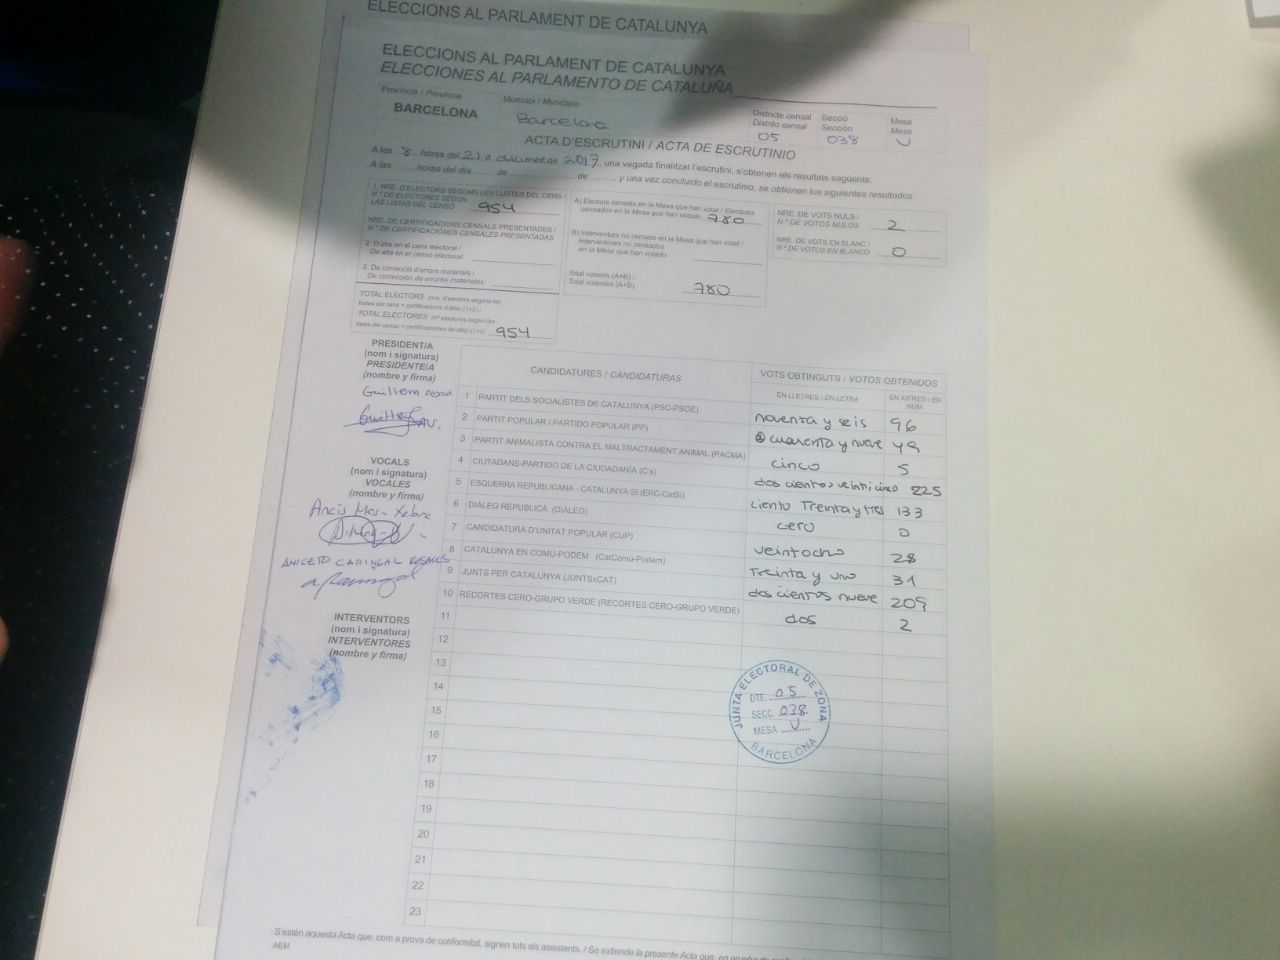 ELECCIONS AL PARLAMENT DE CATALUNYA
ELECCIONS AL PARLAMENT DE CATALUNYA
ELECCIONES AL PARLAMENTO DE CATALUÑA
Provincia / Provincia
BARCELONA
Municipi / Municipio
Barcelona
Districte censal
Distrito censal
05
Secció
Sección
038
Mesa
Mesa
U
ACTA D'ESCRUTINI / ACTA DE ESCRUTINIO
A les 8 hores del 21 d de 2017, una vegada finalitzat l'escrutini, s'obtenen els resultats següents:
A las ........ horas del día ........ de ........ de ........ y una vez concluido el escrutinio, se obtienen los siguientes resultados:
1. NRE. D'ELECTORS SEGONS LES LLISTES DEL CENS /
N.º DE ELECTORES SEGÚN
LAS LISTAS DEL CENSO 954
NRE. DE CERTIFICACIONS CENSALS PRESENTADES /
N.º DE CERTIFICACIONES CENSALES PRESENTADAS
2. D'alta en el cens electoral /
De alta en el censo electoral
3. De correcció d'errors materials /
De corrección de errores materiales
TOTAL ELECTORS: (nre. d'electors segons les
llistes del cens + certificacions d'alta) (1+2) /
TOTAL ELECTORES: (nº electores según las
listas del censo + certificaciones de alta) (1+2) 954
A) Electors censats en la Mesa que han votat / Electores
censados en la Mesa que han votado 780
B) Interventors no censats en la Mesa que han votat /
Interventores no censados
en la Mesa que han votado
Total votants (A+B) /
Total votantes (A+B) 780
NRE. DE VOTS NULS /
N.º DE VOTOS NULOS 2
NRE. DE VOTS EN BLANC /
N.º DE VOTOS EN BLANCO 0
PRESIDENT/A
(nom i signatura)
PRESIDENTE/A
(nombre y firma)
Guillem
VOCALS
(nom i signatura)
VOCALES
(nombre y firma)
ANICETO CARINGAL ROSALES
INTERVENTORS
(nom i signatura)
INTERVENTORES
(nombre y firma)
CANDIDATURES / CANDIDATURAS
VOTS OBTINGUTS / VOTOS OBTENIDOS
EN LLETRES / EN LETRA
EN XIFRES / EN NÚM
1 PARTIT DELS SOCIALISTES DE CATALUNYA (PSC-PSOE) noventa y seis 96
2 PARTIT POPULAR / PARTIDO POPULAR (PP) cuarenta y nueve 49
3 PARTIT ANIMALISTA CONTRA EL MALTRACTAMENT ANIMAL (PACMA) cinco 5
4 CIUTADANS-PARTIDO DE LA CIUDADANÍA (C's) dos cientos veinticinco 225
5 ESQUERRA REPUBLICANA - CATALUNYA SÍ (ERC-CatSí) ciento Treinta y tres 133
6 DIÀLEG REPUBLICÀ (DIÀLEG) cero 0
7 CANDIDATURA D'UNITAT POPULAR (CUP) veintocho 28
8 CATALUNYA EN COMÚ-PODEM (CatComú-Podem) Treinta y uno 31
9 JUNTS PER CATALUNYA (JUNTSxCAT) dos cientos nueve 209
10 RECORTES CERO-GRUPO VERDE (RECORTES CERO-GRUPO VERDE) dos 2
11
12
13
14
15
16
17
18
19
20
21
22
23
JUNTA ELECTORAL DE ZONA
DTE. 05
SECC. 038
MESA U
BARCELONA
S'estén aquesta Acta que, com a prova de conformitat, signen tots els assistents. / Se extiende la presente Acta que, en prueba de
AEM